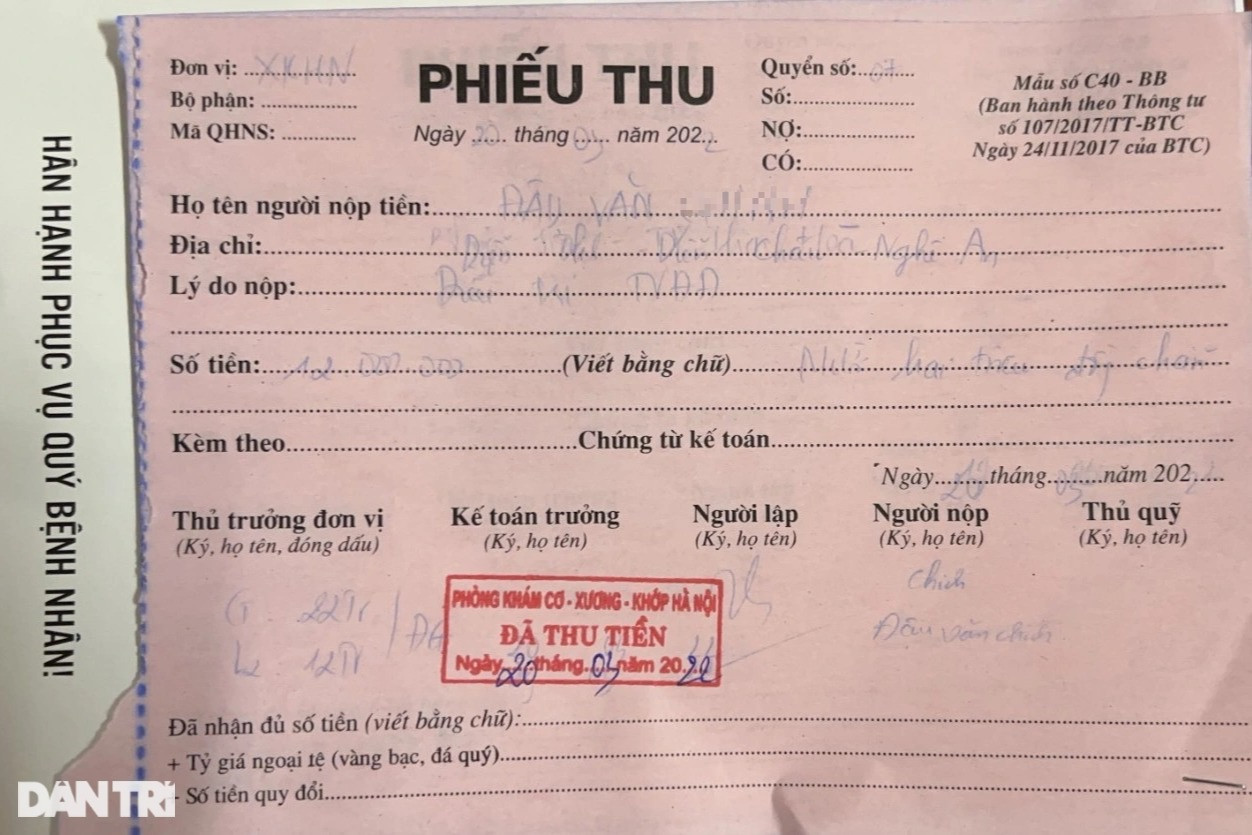 HÂN HẠNH PHỤC VỤ QUÝ BỆNH NHÂN!
Đơn vị: XKHN
Bộ phận:
Mã QHNS:
PHIẾU THU
Ngày 20 tháng 03 năm 2022
Quyển số: 07
Số:
NỢ:
CÓ:
Mẫu số C40 - BB
(Ban hành theo Thông tư
số 107/2017/TT-BTC
Ngày 24/11/2017 của BTC)
Họ tên người nộp tiền: ĐẬU VĂN
Địa chỉ: Nghệ An
Lý do nộp: TVĐĐ
Số tiền: 12.000.000 (Viết bằng chữ) hai triệu đồng chẵn
Kèm theo Chứng từ kế toán
Ngày 20 tháng 03 năm 2022
Thủ trưởng đơn vị
(Ký, họ tên, đóng dấu)
Kế toán trưởng
(Ký, họ tên)
Người lập
(Ký, họ tên)
Người nộp
(Ký, họ tên)
Thủ quỹ
(Ký, họ tên)
T. 22Tr
L. 12Tr
ĐÃ
PHÒNG KHÁM CƠ - XƯƠNG - KHỚP HÀ NỘI
ĐÃ THU TIỀN
Ngày 20 tháng 03 năm 2022
Đã nhận đủ số tiền (viết bằng chữ):
+ Tỷ giá ngoại tệ (vàng bạc, đá quý)
Số tiền quy đổi
DÂN TRÍ